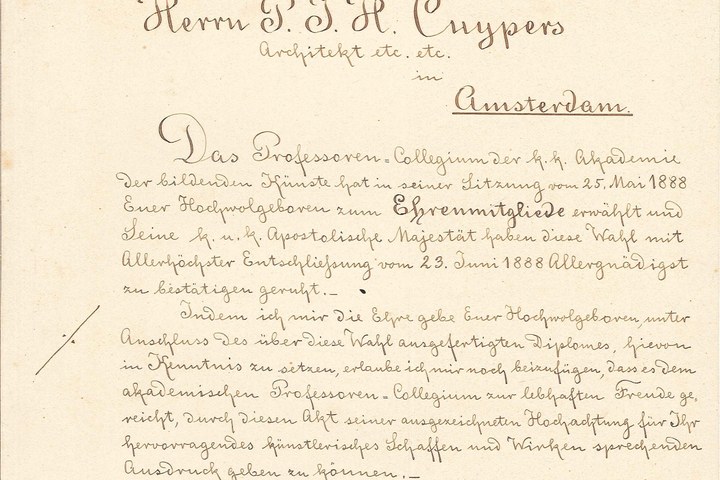 Herrn P. J. H. Cuypers
Architekt etc. etc.
in
Amsterdam.
Das Professoren-Collegium der k. k. Akademie
der bildenden Künste hat in seiner Sitzung vom 25. Mai 1888
Euer Hochwolgeboren zum Ehrenmitgliede erwählt und
Seine k. u. k. Apostolische Majestät haben diese Wahl mit
Allerhöchster Entschließung vom 23. Juni 1888 Allergnädigst
zu bestätigen geruht.—
Indem ich mir die Ehre gebe Euer Hochwolgeboren, unter
Anschluss des über diese Wahl ausgefertigten Diplomes, hievon
in Kenntnis zu setzen, erlaube ich mir noch beizufügen, dass es dem
akademischen Professoren-Collegium zur lebhaften Freude ge,
reicht, durch diesen Akt seiner ausgezeichneten Hochachtung für Ihr
hervorragendes künstlerisches Schaffen und Wirken sprechenden
Ausdruck geben zu können.—